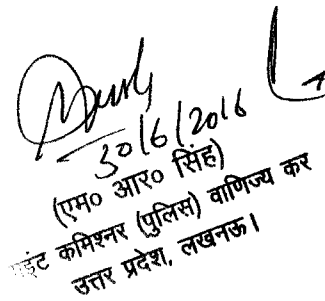 30/6/2016
(एम० आर० सिंह)
कमिश्नर (पुलिस) वाणिज्य कर
उत्तर प्रदेश, लखनऊ।